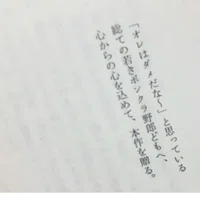 「オレはダメだな〜」と思っている
総ての若きボンクラ野郎どもへ、
心からの心を込めて、本作を贈る。